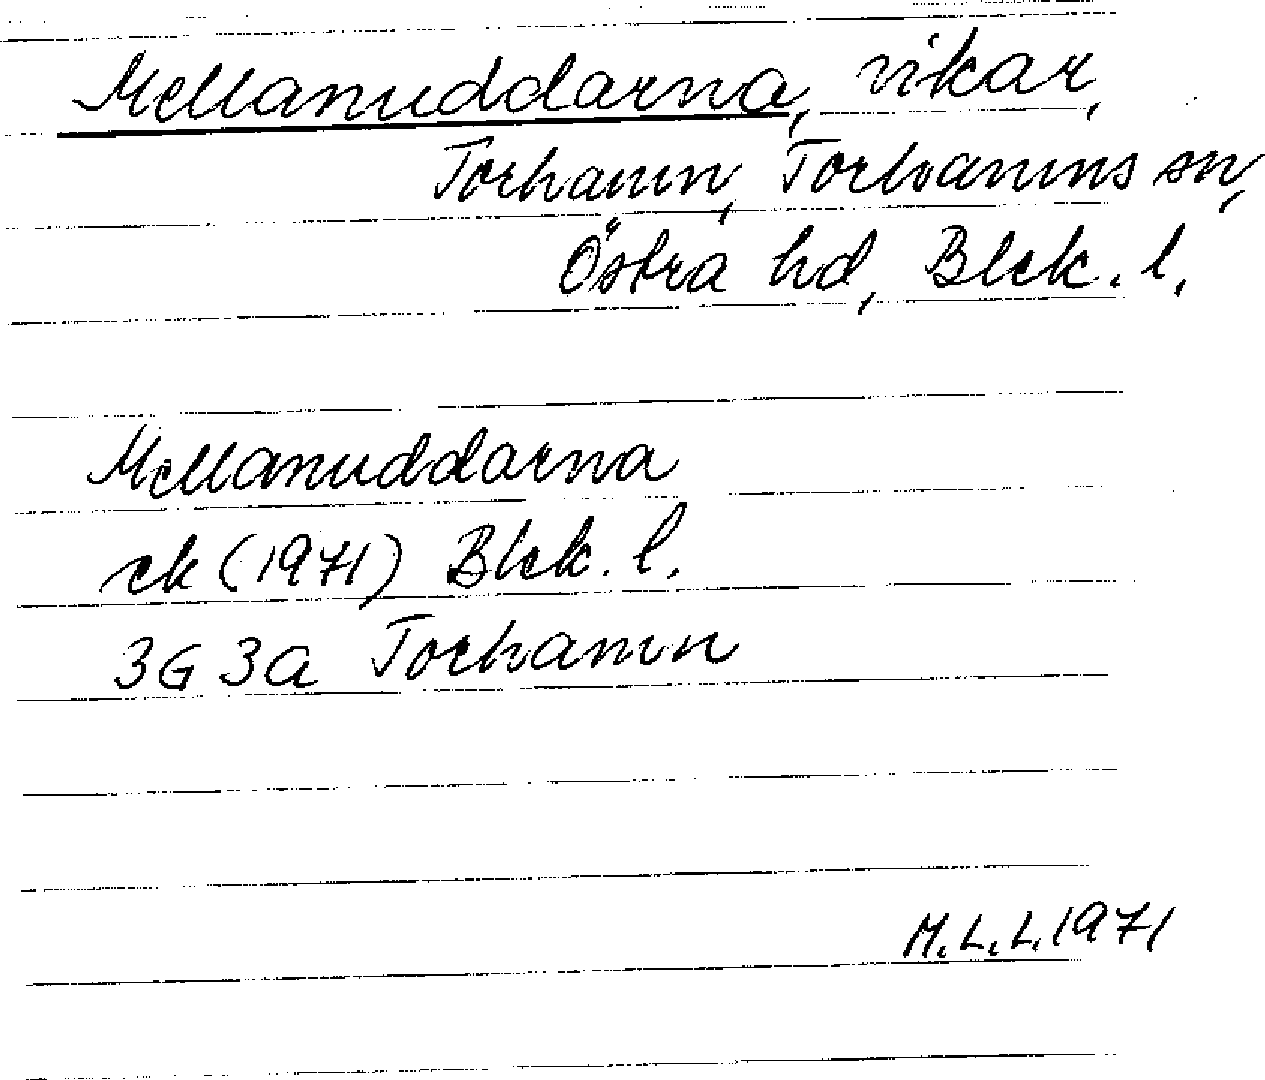 Mellanuddarna, vikar,
Torhamn, Torhamns sn,
Östra hd, Blek. l.
Mellanuddarna
ek (1971) Blek. l.
3G 3a Torhamn
M.L.L. 1971